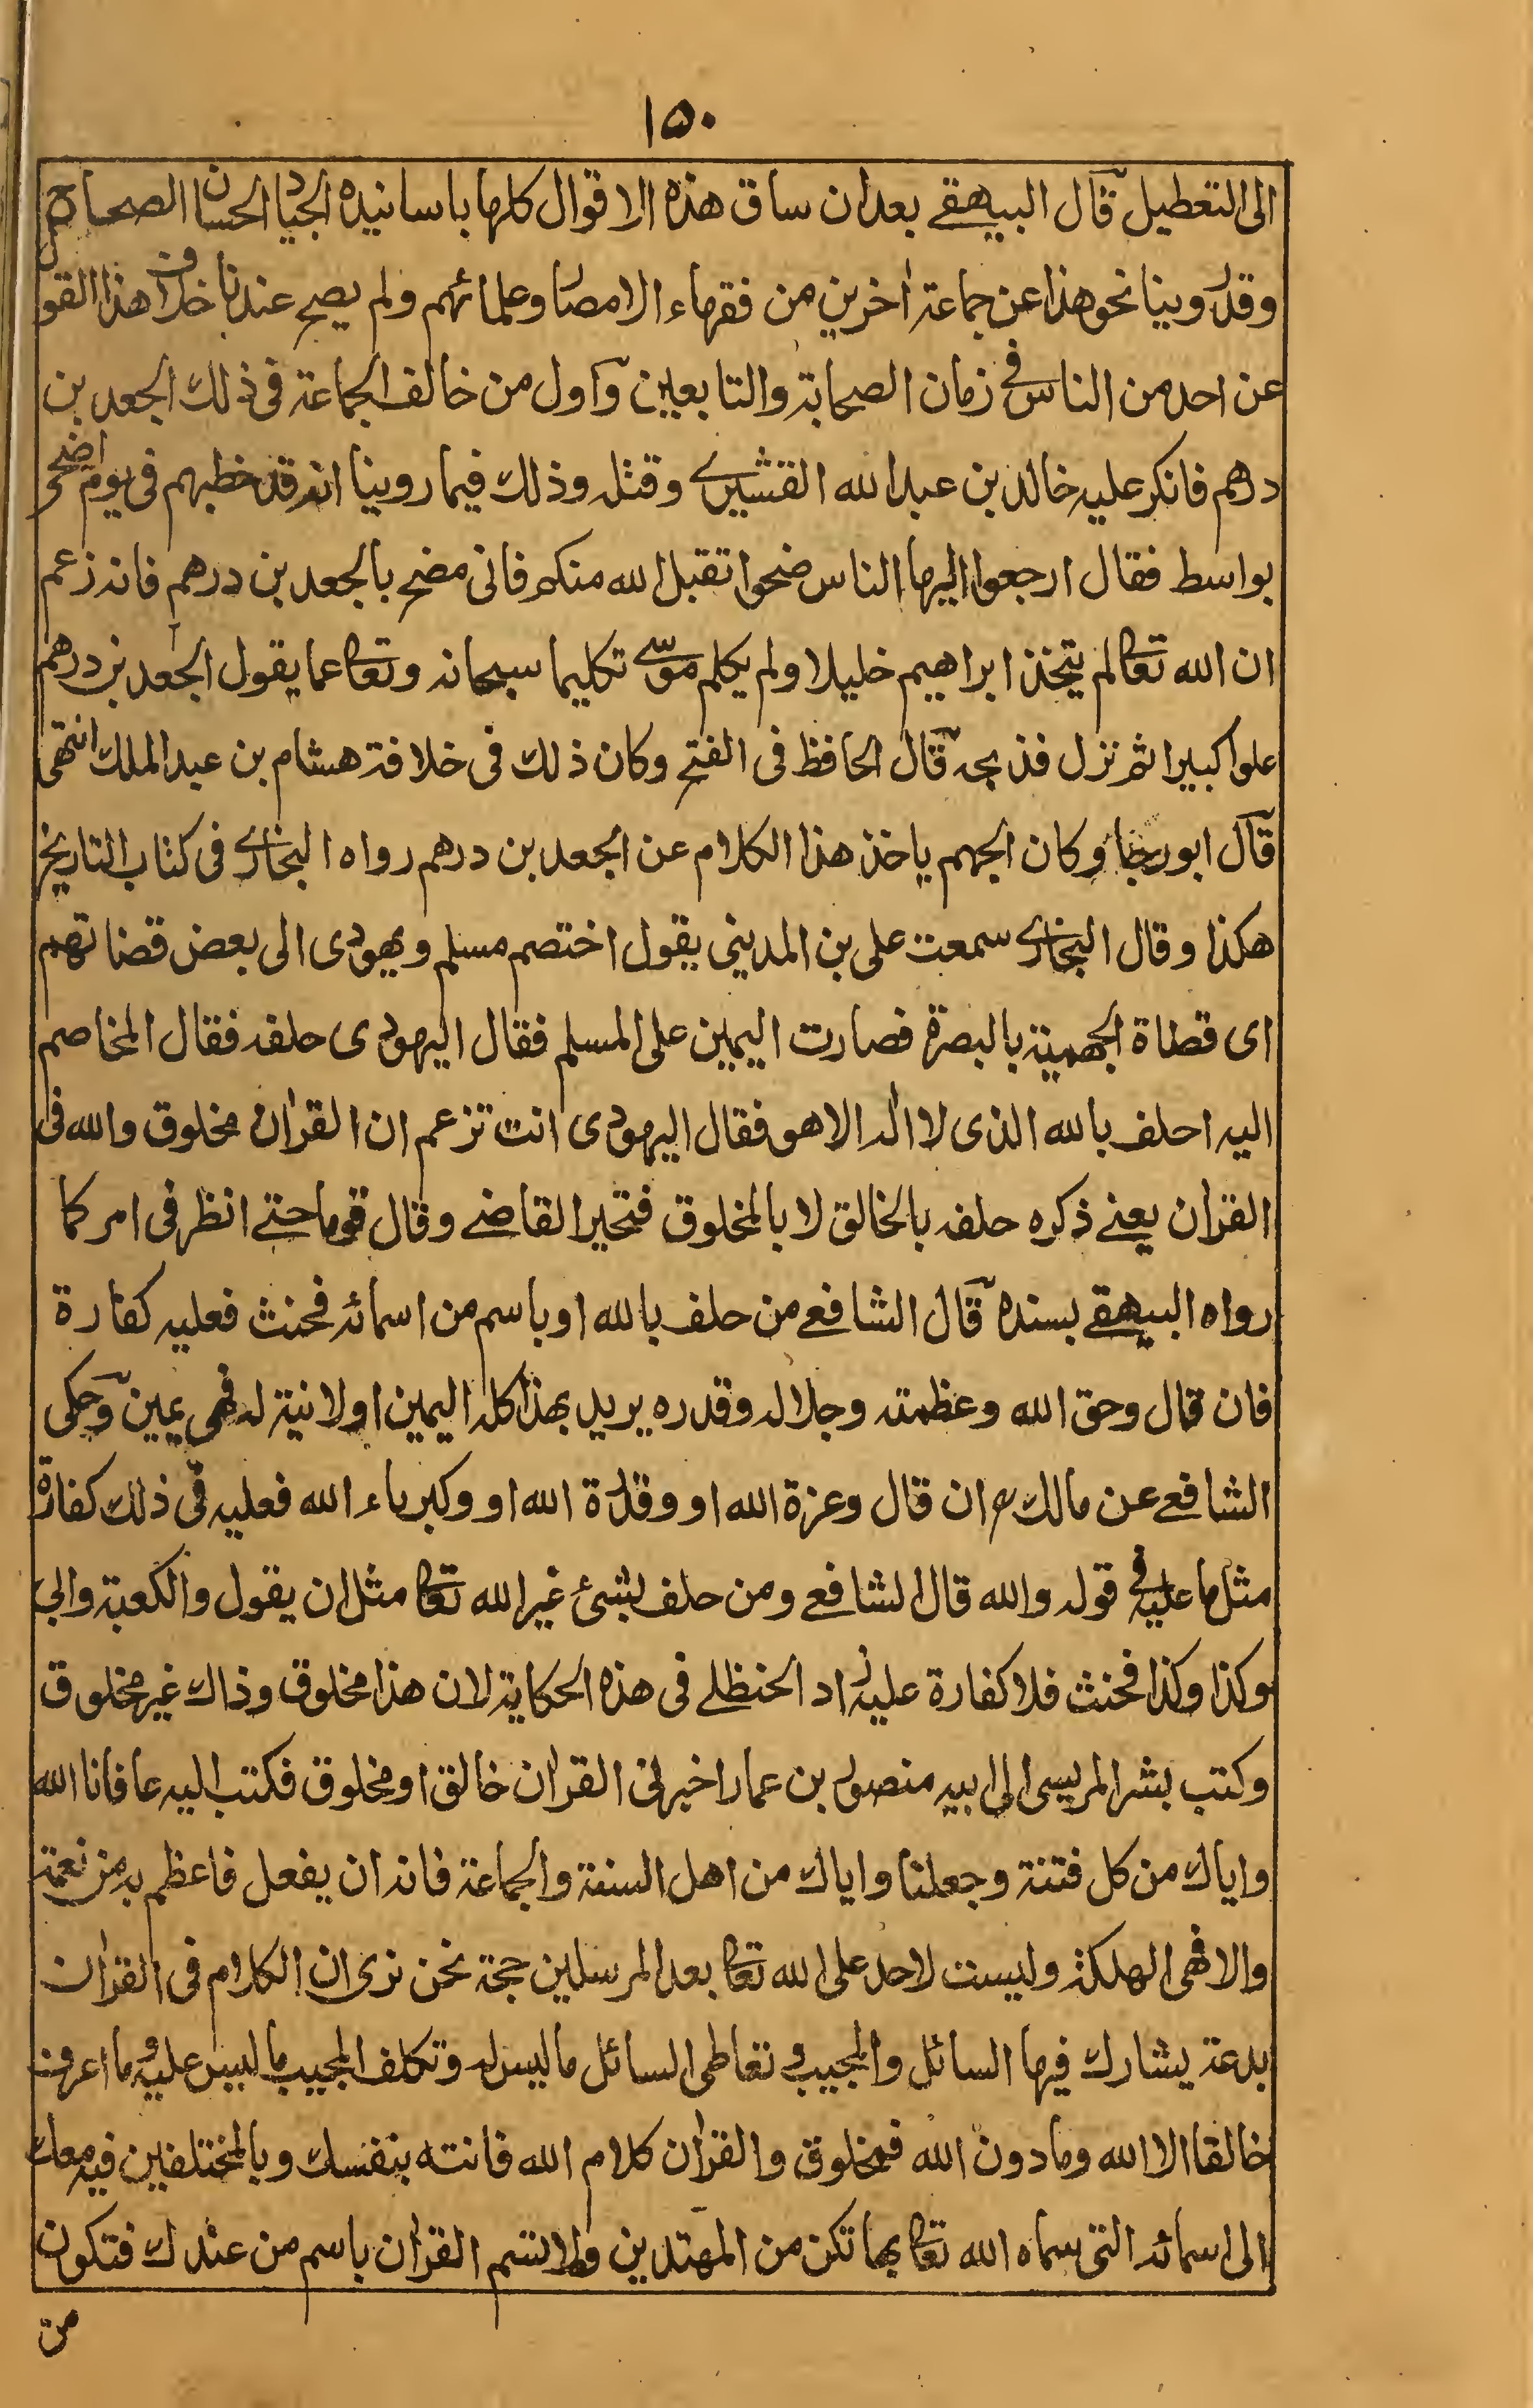 ١٥٠
الى التعطيل قال البيهقے بعد ان ساق هذه الاقوال كلها باسانيده الجياد الحسان الصحاح
وقد روينا نحو هذا عن جماعة اٰخرين من فقهاء الامصار وعلمائهم ولم يصح عندنا خلاف هذا القول
عن احد من الناس فے زمان الصحابة والتابعين واول من خالف الجماعة فى ذلك الجعد بن
درهم فانكر عليه خالد بن عبد الله القشيرے وقتله وذلك فيما روينا انه قد خطبهم فى يوم اضحى
بواسط فقال ارجعوا ايها الناس ضحوا تقبل الله منكم فانى مضح بالجعد بن درهم فانه زعم
ان الله تعالى لم يتخذ ابراهيم خليلا ولم يكلم موسى تكليما سبحانه وتعالى عما يقول الجعد بن درهم
علوا كبيرا ثم نزل فذبحه قال الحافظ فى الفتح وكان ذلك فى خلافة هشام بن عبد الملك انتهى
قال ابو رجاء وكان الجهم ياخذ هذا الكلام عن الجعد بن درهم رواه البخارى فى كتاب التاريخ
هكذا وقال البخارى سمعت على بن المدينى يقول اختصم مسلم ويهودى الى بعض قضاتهم
اى قضاة الجهمية بالبصرة فصارت اليمين على المسلم فقال اليهودى حلفه فقال المخاصم
اليه احلف بالله الذى لا اله الا هو فقال اليهودى انت تزعم ان القراٰن مخلوق والله فى
القراٰن يعنے ذكره حلفه بالخالق لا بالمخلوق فتحير القاضے وقال قوما حتے انظر فى امركما
رواه البيهقے بسنده قال الشافعے من حلف بالله او باسم من اسمائه فحنث فعليه كفارة
فان قال وحق الله وعظمته وجلاله وقدره يريد بهذا كله اليمين او لا نية له فهى يمين وحكى
الشافعے عن مالك ان قال وعزة الله او وقدرة الله او وكبرياء الله فعليه فى ذلك كفارة
مثل ما عليه فے قوله والله قال الشافعے ومن حلف بشئ غير الله تعالى مثل ان يقول والكعبة وابى
وكذا وكذا فحنث فلا كفارة عليه زاد الحنظلے فى هذه الحكاية لان هذا مخلوق وذاك غير مخلوق
وكتب بشر المريسى الى ابيه منصور بن عمار اخبرنى القراٰن خالق او مخلوق فكتب اليه عافانا الله
واياك من كل فتنة وجعلنا واياك من اهل السنة والجماعة فانه ان يفعل فاعظم به من نعمة
والا فهى الهلكة وليست لاحد على الله تعالى بعد المرسلين حجة نحن نرى ان الكلام فى القراٰن
بدعة يشارك فيها السائل والمجيب وتعاطى السائل ما ليس له وتكلف المجيب ما ليس عليه وما اعرف
خالقا الا الله وما دون الله فمخلوق والقراٰن كلام الله فانته بنفسك وبالمختلفين فيه معك
الى اسمائه التى سماه الله تعالى بها تكن من المهتدين ولا تسم القراٰن باسم من عندك فتكون
من